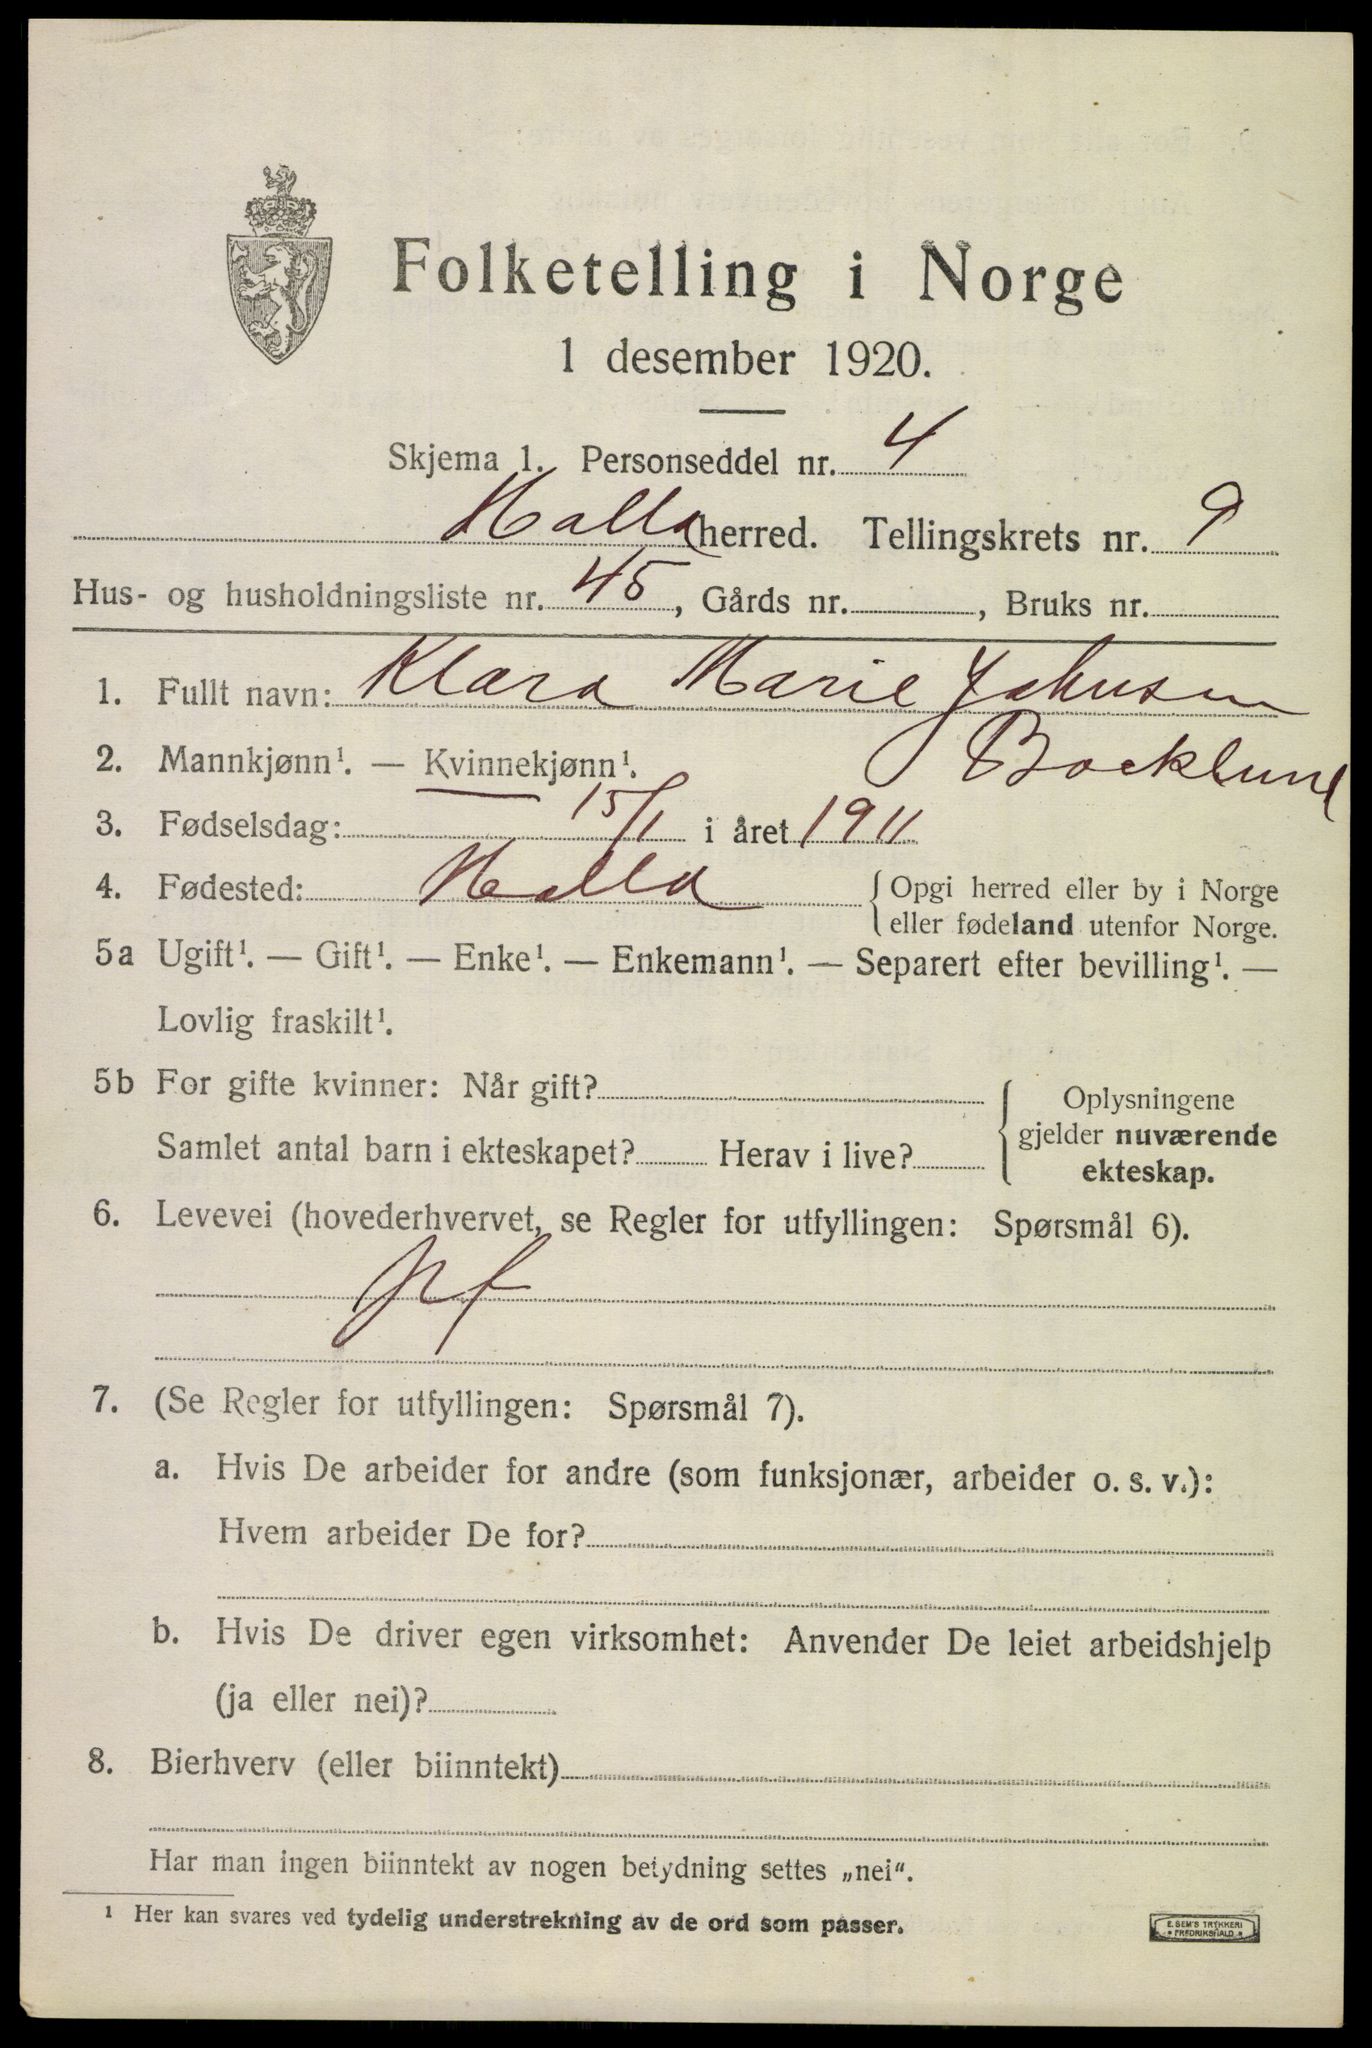 Folketelling i Norge
1 desember 1920.
Skjema 1. Personseddel nr. 4
Holla herred. Tellingskrets nr. 9
Hus- og husholdningsliste nr. 45, Gårds nr. , Bruks nr.
1. Fullt navn: Klara Marie Johnsen
Boeklund
2. Mannkjønn¹. — Kvinnekjønn¹.
3. Fødselsdag: 15/1 i året 1911
4. Fødested: Holla {Opgi herred eller by i Norge
eller fødeland utenfor Norge.
5a Ugift¹. — Gift¹. — Enke¹. — Enkemann¹. — Separert efter bevilling¹. —
Lovlig fraskilt¹.
5b For gifte kvinner: Når gift?
Samlet antal barn i ekteskapet? Herav i live?
Oplysningene
gjelder nuværende
ekteskap.
6. Levevei (hovederhvervet, se Regler for utfyllingen: Spørsmål 6).
7. (Se Regler for utfyllingen: Spørsmål 7).
a. Hvis De arbeider for andre (som funksjonær, arbeider o. s. v.):
Hvem arbeider De for?
b. Hvis De driver egen virksomhet: Anvender De leiet arbeidshjelp
(ja eller nei)?
8. Bierhverv (eller biinntekt)
Har man ingen biinntekt av nogen betydning settes „nei“.
¹ Her kan svares ved tydelig understrekning av de ord som passer.
E. SEM'S TRYKKERI
FREDRIKSHALD